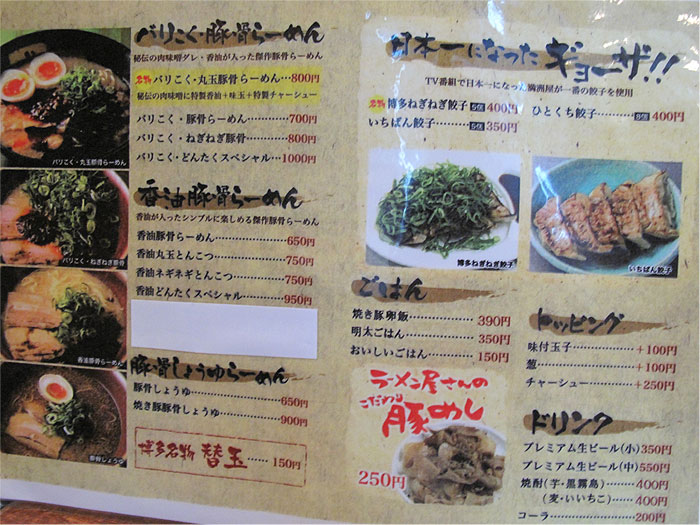 バリこく・豚骨らーめん
秘伝の肉味噌ダレ・香油が入った傑作豚骨らーめん
名物 バリこく・丸玉豚骨らーめん…800円
秘伝の肉味噌に特製香油+味玉+特製チャーシュー
バリこく・豚骨らーめん…………700円
バリこく・ねぎねぎ豚骨…………800円
バリこく・どんたくスペシャル…1000円
香油豚骨らーめん
香油が入ったシンプルに楽しめる傑作豚骨らーめん
香油豚骨らーめん…………650円
香油丸玉とんこつ…………750円
香油ネギネギとんこつ……750円
香油どんたくスペシャル……950円
豚骨しょうゆらーめん
豚骨しょうゆ……………650円
焼き豚豚骨しょうゆ………900円
博多名物 替玉……150円
バリこく・丸玉豚骨らーめん
バリこく・ねぎねぎ豚骨
香油豚骨らーめん
豚骨しょうゆ
日本一になったギョーザ!!
TV番組で日本一になった満洲屋が一番の餃子を使用
名物 博多ねぎねぎ餃子 400円
いちばん餃子 350円
ひとくち餃子 400円
博多ねぎねぎ餃子
いちばん餃子
ごはん
焼き豚卵飯……………390円
明太ごはん……………350円
おいしいごはん………150円
ラーメン屋さんの
こだわり
豚めし
250円
トッピング
味付玉子…………+100円
葱…………………+100円
チャーシュー……+250円
ドリンク
プレミアム生ビール(小)350円
プレミアム生ビール(中)550円
焼酎(芋・黒霧島)………400円
(麦・いいちこ)……400円
コーラ…………………200円